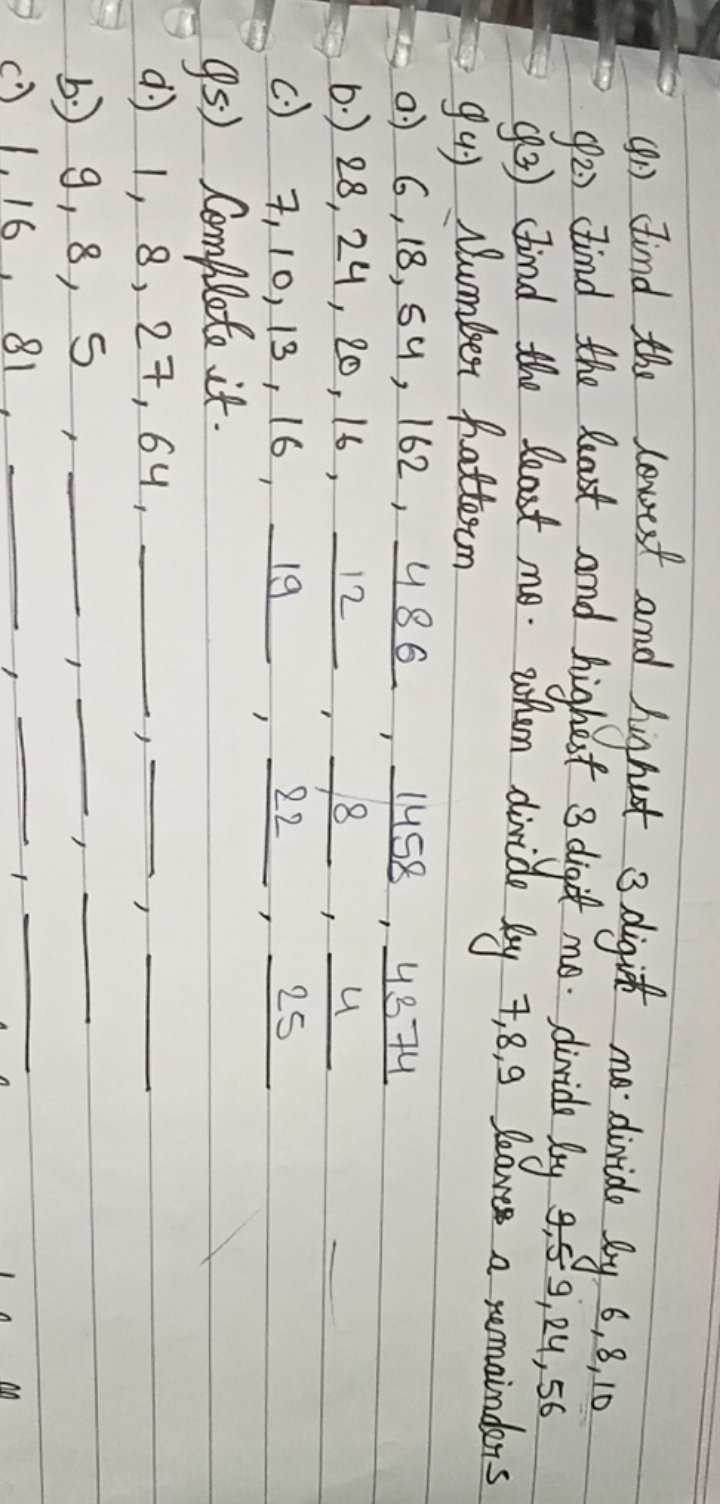 Q1.) Find the lowest and highest 3 digit no. divide by 6,8,10
Q2.) Find the least and highest 3 digit no. divide by 9,5 9,24,56
Q3.) Find the least no. when divide by 7,8,9 leaves a remainders
Q4.) Number pattern
a.) 6, 18, 54, 162, 486, 1458, 4374
b.) 28, 24, 20, 16, 12, 8, 4
c.) 7, 10, 13, 16, 19, 22, 25
Q5.) Complete it.
a.) 1, 8, 27, 64, ___, ___, ___
b.) 9, 8, 5, ___, ___, ___
c.) 1, 16, 81, ___, ___, ___